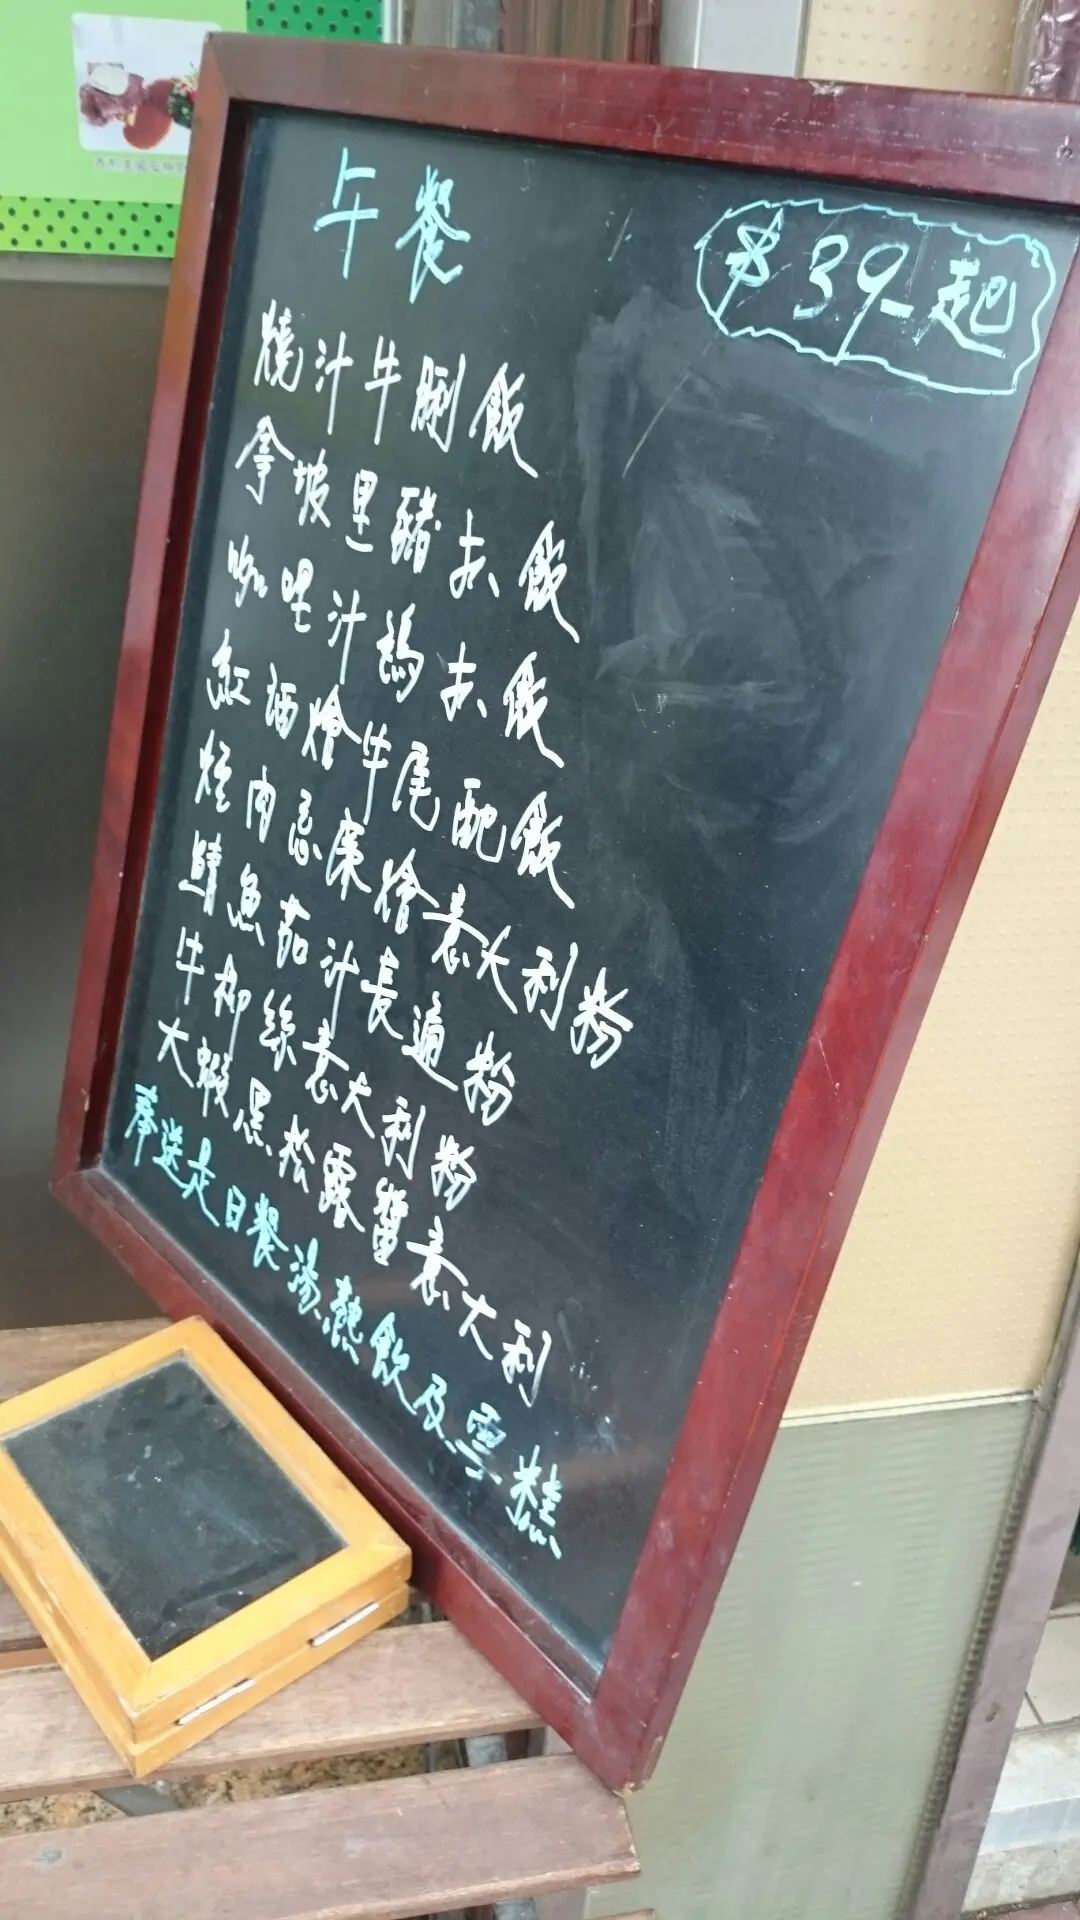 午餐
$39-起
燒汁牛脷飯
拿坡里豬扒飯
咖喱汁鷄扒飯
紅酒燴牛尾配飯
烟肉忌廉燴意大利粉
鯖魚茄汁長通粉
牛柳絲意大利粉
大蝦黑松露醬意大利
奉送是日餐湯熱飲及雪糕